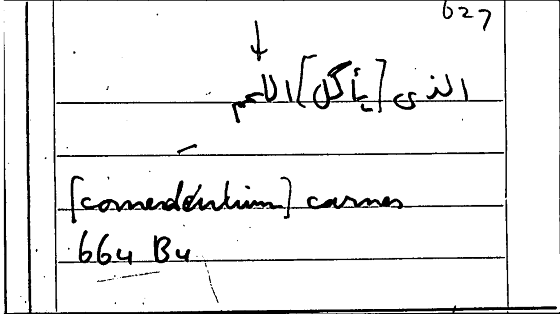 627
الذى [يأكل] اللحم
[comendentium] carnes
664 B4